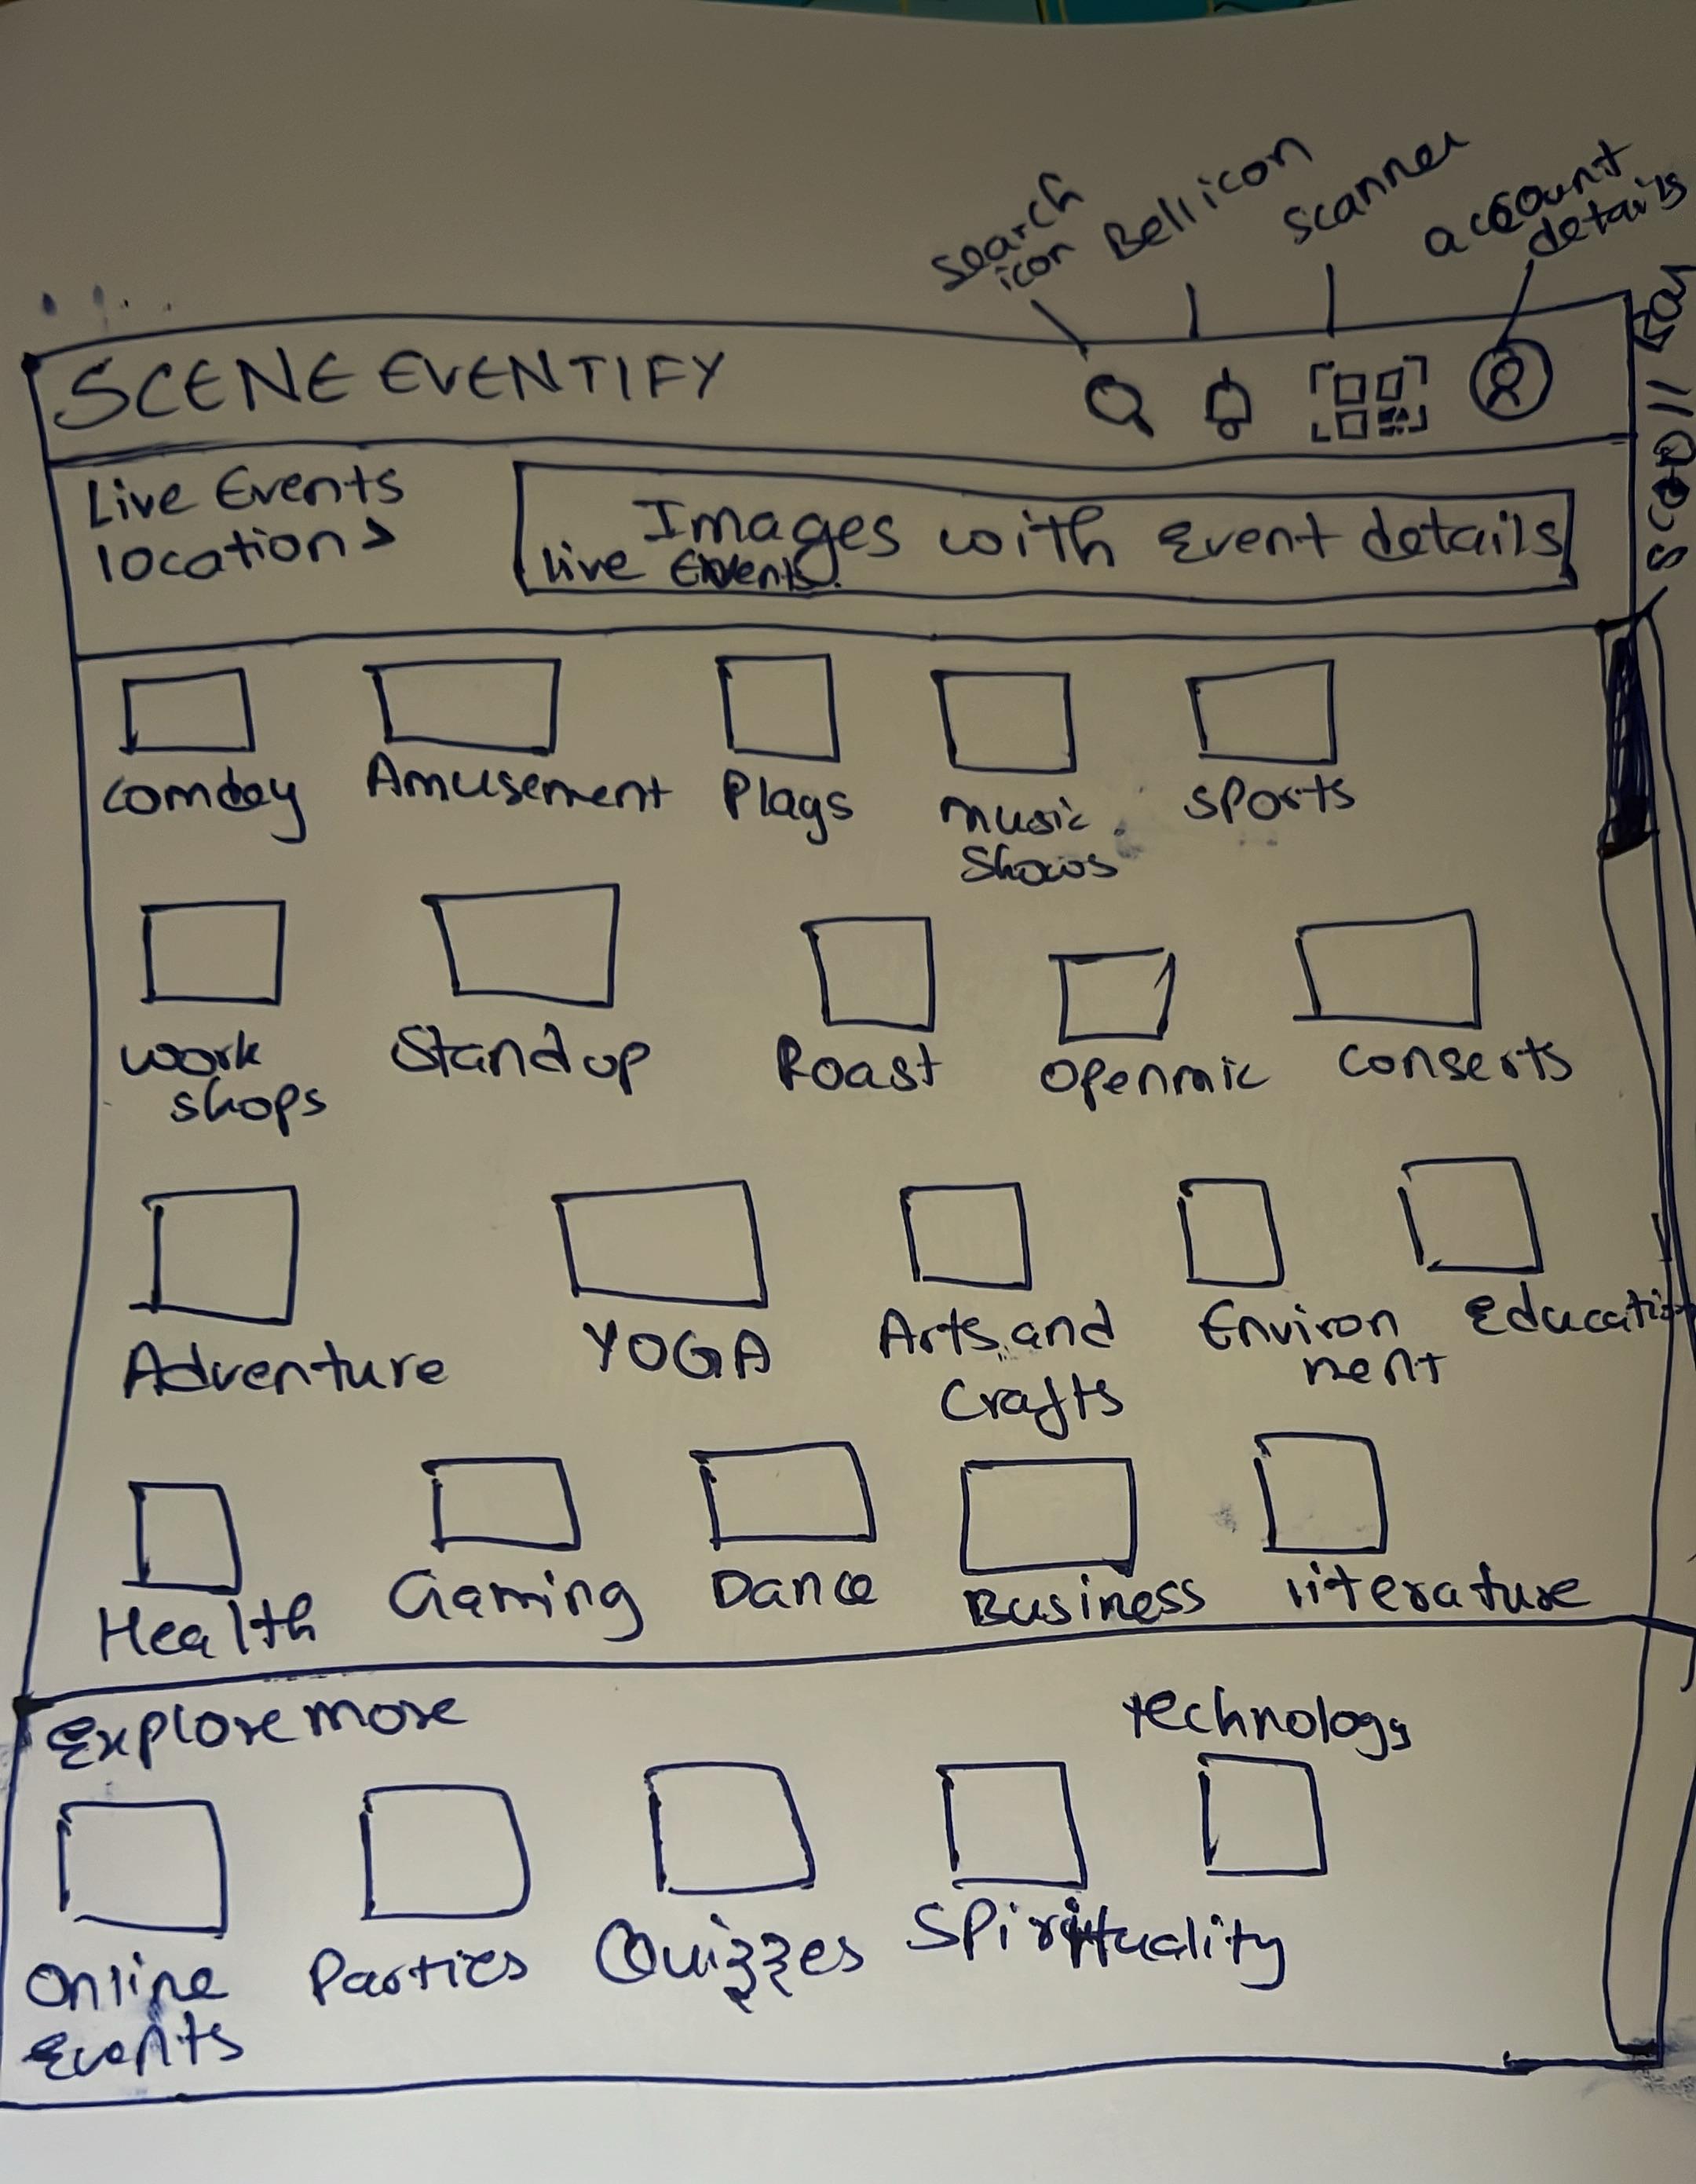 search
icon
Bell icon
scanner
account
details
SCENE EVENTIFY
scroll bar
Live Events
location >
Images with Event details
live Events.
comdey
Amusement
Plays
music
shows
sports
work
shops
Standup
Roast
openmic
conserts
Adventure
YOGA
Arts and
crafts
Environ
ment
Education
Health
Gaming
Dance
Business
literature
Explore more
technology
Online
Events
Parties
Quizzes
Spirituality